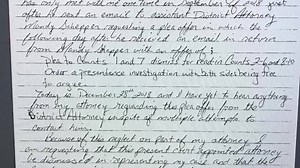 has only met with me one time in September of 2018 just
after he sent an email to Assistant District Attorney
Mandy Shepper requesting a plea offer in which the
following day after he received an email in return
from Mandy Shepper with an offer of;
Plea to Counts 1 and 7 dismiss for read-in Counts 2-6 and 8-10
Order a presentence investigation with both sides being free
to argue.
Today is December 25th 2018 and I have yet to hear anything
from my attorney regarding the plea offer from the
District Attorney despite of multiple attempts to
contact him.
Because of this neglect on part of my attorney I
am requesting that this present court appointed attorney
be dismissed in representing my case and that the